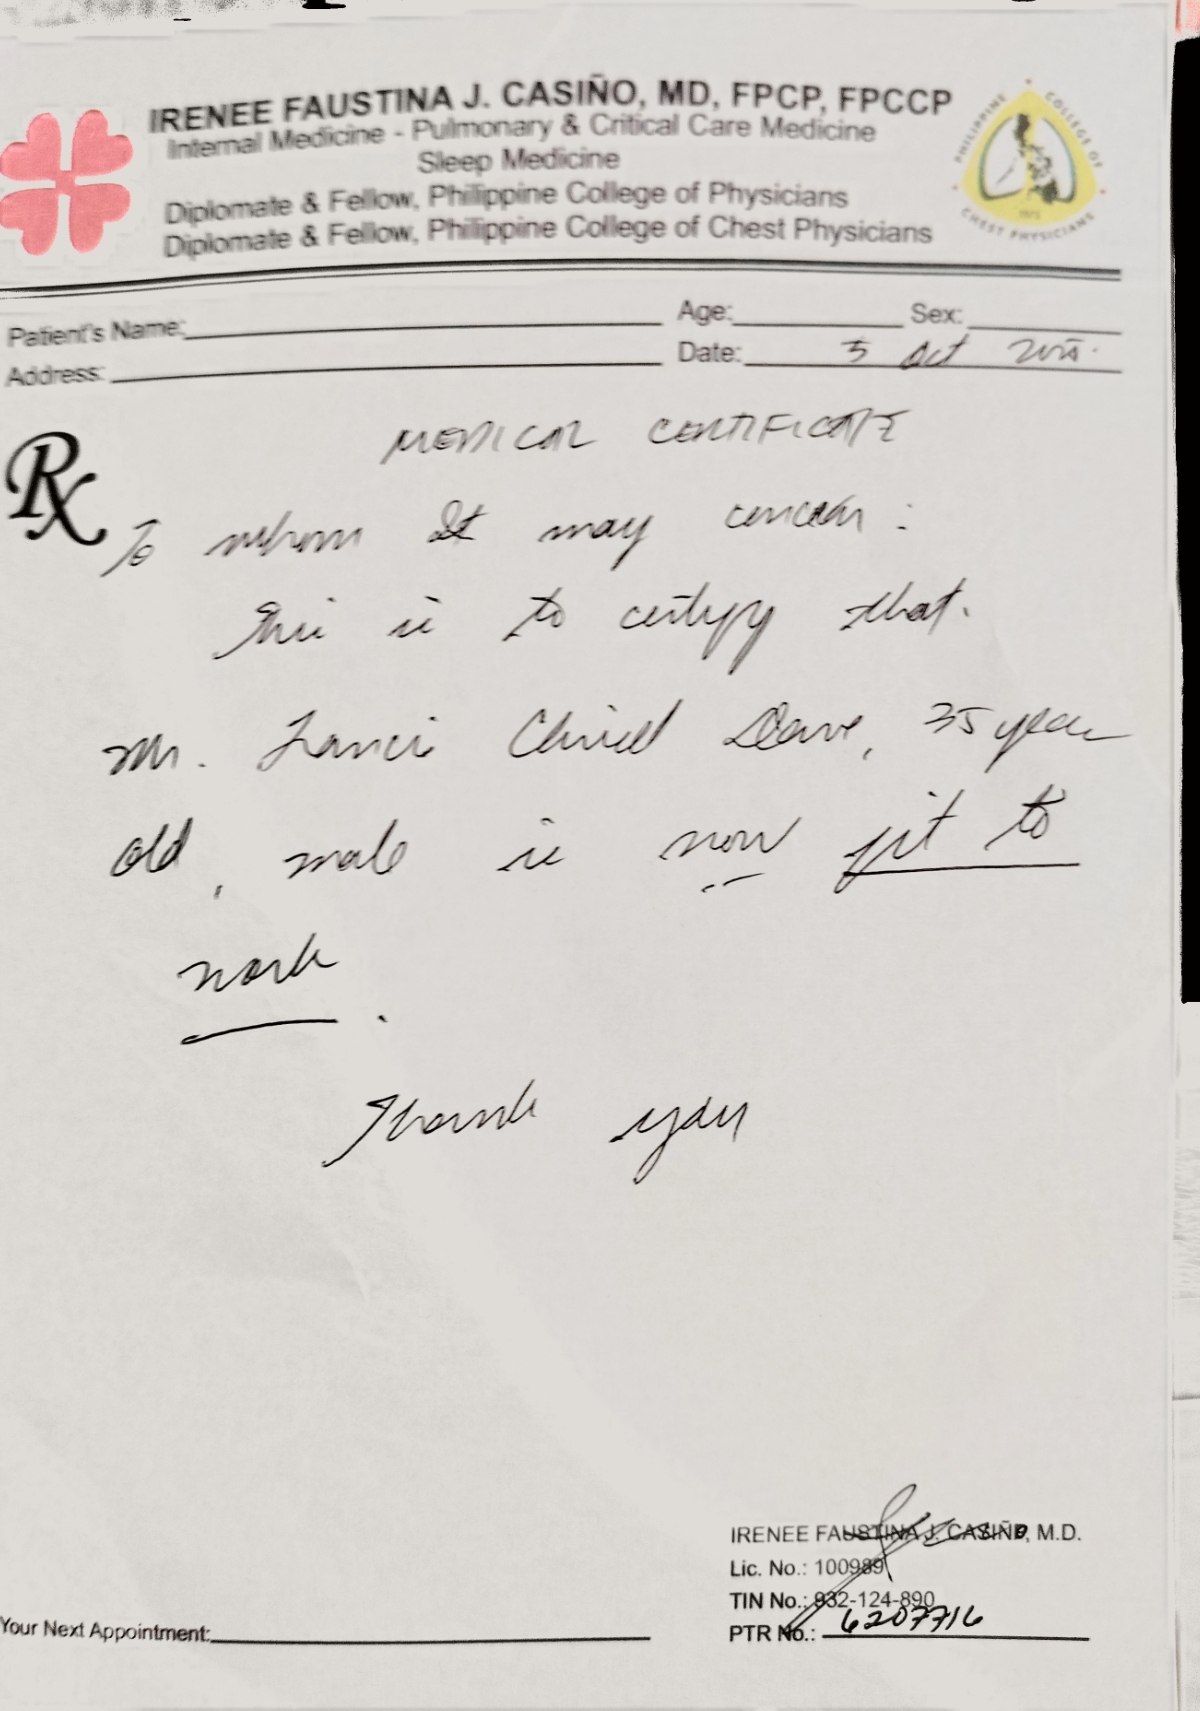 IRENEE FAUSTINA J. CASIÑO, MD, FPCP, FPCCP
Internal Medicine - Pulmonary & Critical Care Medicine
Sleep Medicine
Diplomate & Fellow, Philippine College of Physicians
Diplomate & Fellow, Philippine College of Chest Physicians
PHILIPPINE COLLEGE OF CHEST PHYSICIANS
Patient's Name: Age: Sex:
Address: Date: 5 Oct
Rx
MEDICAL CERTIFICATE
To whom It may concern :
This is to certify that
Mr. Dave, 35 year
old, male is now fit to
work.
Thank you
IRENEE FAUSTINA J. CASIÑO, M.D.
Lic. No.: 100989
TIN No.: 932-124-890
PTR No.: 6207716
Your Next Appointment: